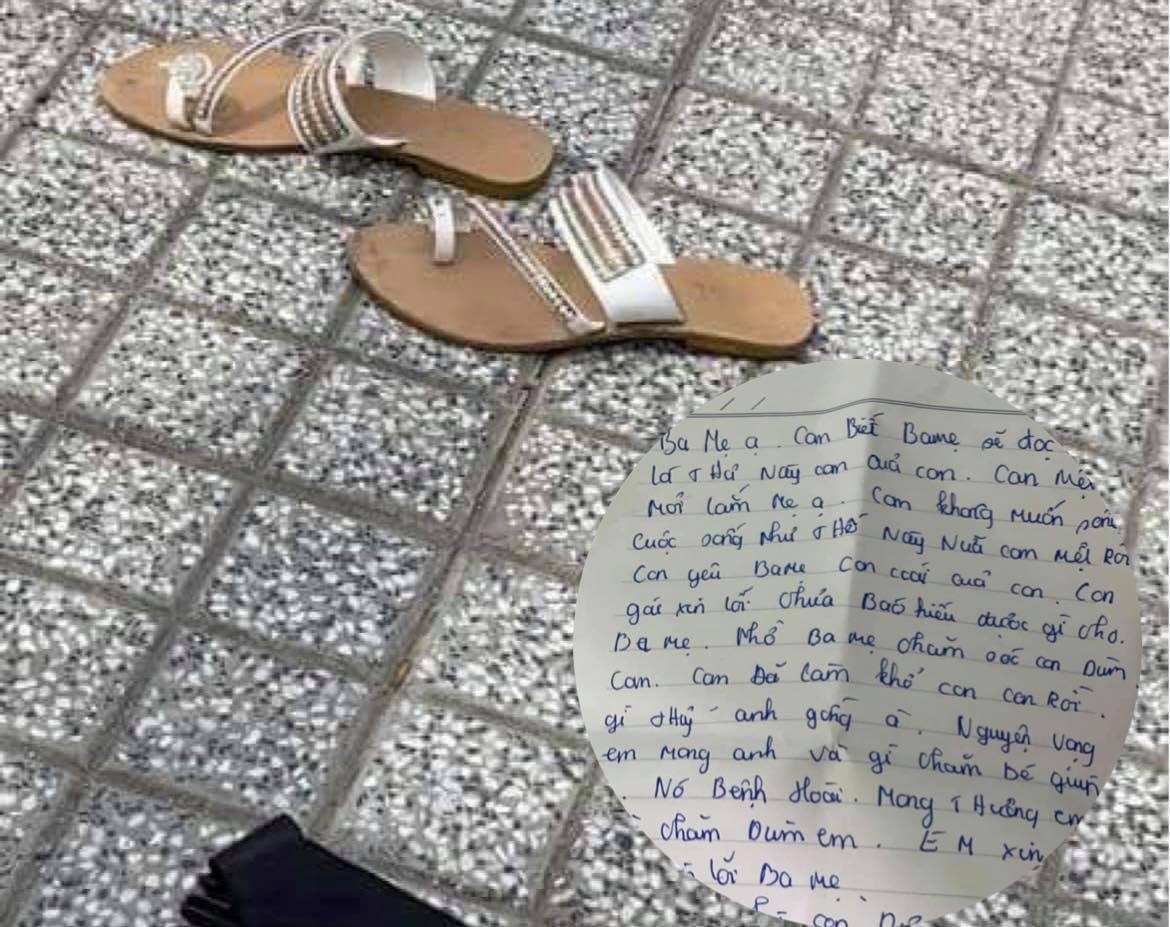 Ba Mẹ ạ. Con Biết Bamẹ sẽ đọc
lá thư Này con của con. Con Mệt
Mỏi lắm Mẹ ạ. Con không Muốn
cuộc sống Như thế Này Nữa con Mệt Rồi
Con yêu BaMẹ Con của con. Con
gái xin lỗi. chưa Báo hiếu được gì cho.
Ba Mẹ. Nhờ Ba Mẹ chăm sóc con Dùm
Con. Con Đã làm khổ con con Rồi.
gì thuỷ anh à. Nguyện vọng
em Mong anh và gì chăm bé giùm
Nó Bệnh Hoài. Mong Thương em
chăm Dùm em. EM xin
lỗi Ba Mẹ
con